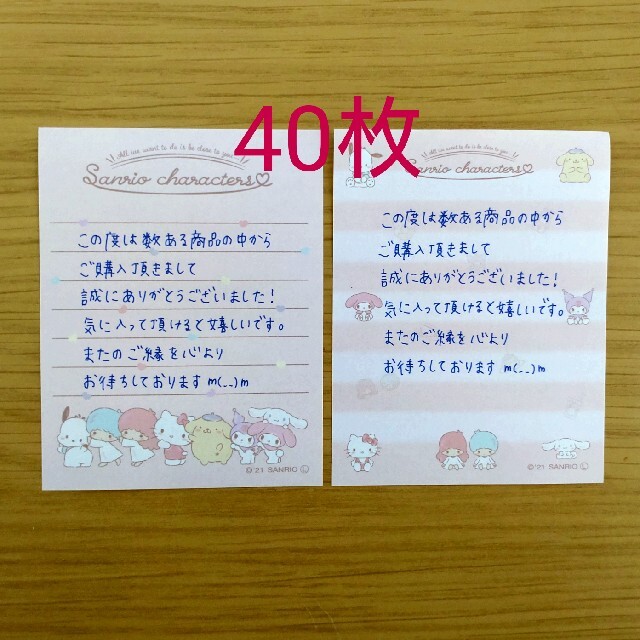 40枚
All we want to do is be close to you.
Sanrio characters♡
この度は数ある商品の中から
ご購入頂きまして
誠にありがとうございました!
気に入って頂けると嬉しいです。
またのご縁を心より
お待ちしております m(__)m
©'21 SANRIO Ⓛ
all we want to do is be close to you.
Sanrio characters♡
この度は数ある商品の中から
ご購入頂きまして
誠にありがとうございました!
気に入って頂けると嬉しいです。
またのご縁を心より
お待ちしております m(__)m
©'21 SANRIO Ⓛ